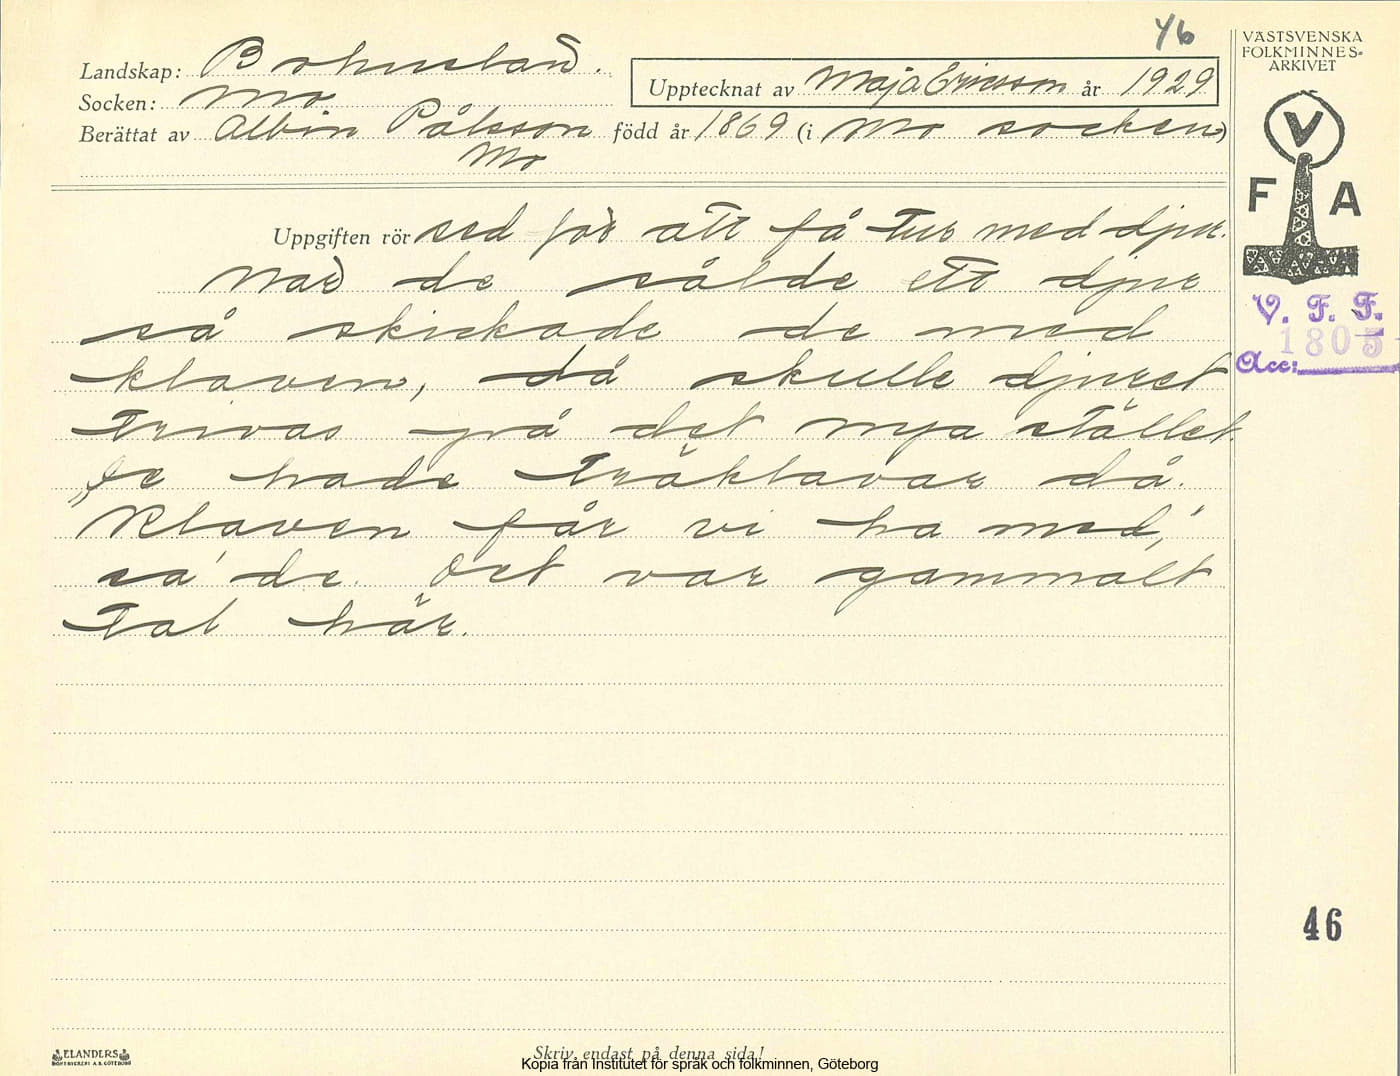 46
VÄSTSVENSKA
FOLKMINNES=
ARKIVET
Landskap: Bohuslän.
Upptecknat av Maja Ericsson år 1929
Socken: Mo
Berättat av Albin Pålsson född år 1869 (i Mo socken)
Mo
V
F A
Uppgiften rör sed för att få tur med djur.
När de sålde ett djur
så skickade de med
klaven, då skulle djuret
trivas på det nya stället.
De hade träklavar då.
"Klaven får vi ha med,"
sa' de. Det var gammalt
tal här.
V. F. F.
1805
Acc:
46
ELANDERS
BOKTRYCKERI A.B. GÖTEBORG
Skriv endast på denna sida!
Kopia från Institutet för språk och folkminnen, Göteborg